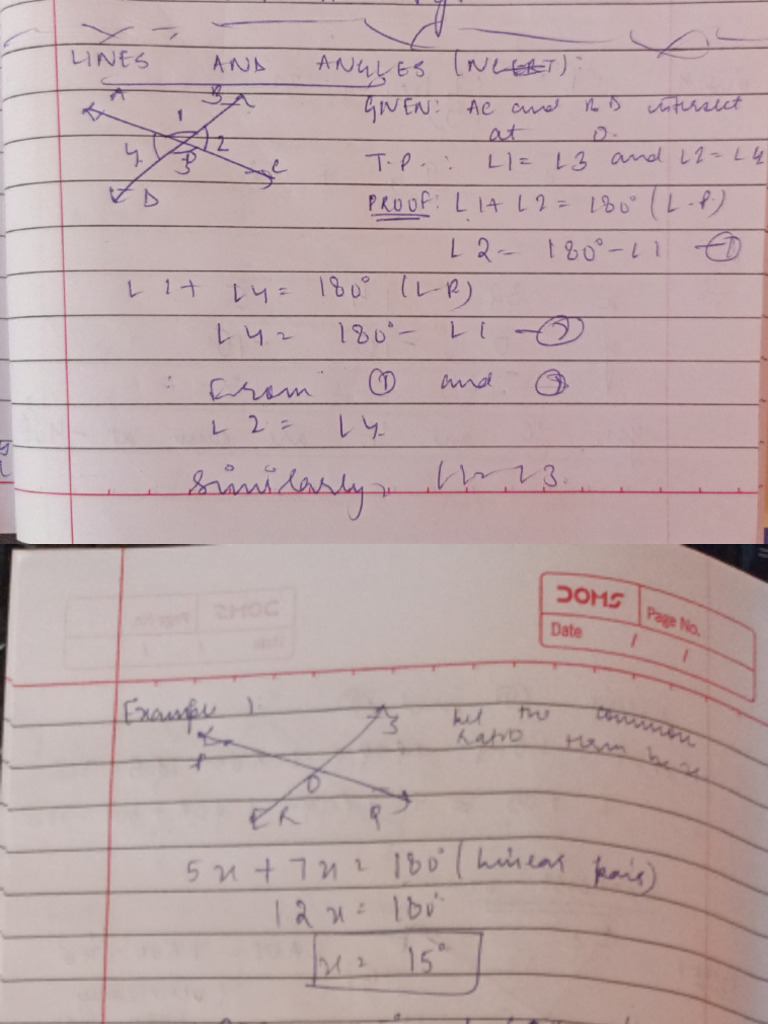 LINES AND ANGLES (NCERT):
A B 1 2 3 4 C D
GIVEN: AC and BD intersect
at O.
T.P.: ∠1 = ∠3 and ∠2 = ∠4
PROOF: ∠1 + ∠2 = 180° (L.P)
∠2 = 180° - ∠1 - ①
∠1 + ∠4 = 180° (L.P)
∠4 = 180° - ∠1 - ②
From ① and ②
∠2 = ∠4
Similarly, ∠1 = ∠3.
DOMS Page No.
Date / /
Example 1
P S O R Q
Let the common
ratio term be x
5x + 7x = 180° (Linear pair)
12x = 180°
x = 15°